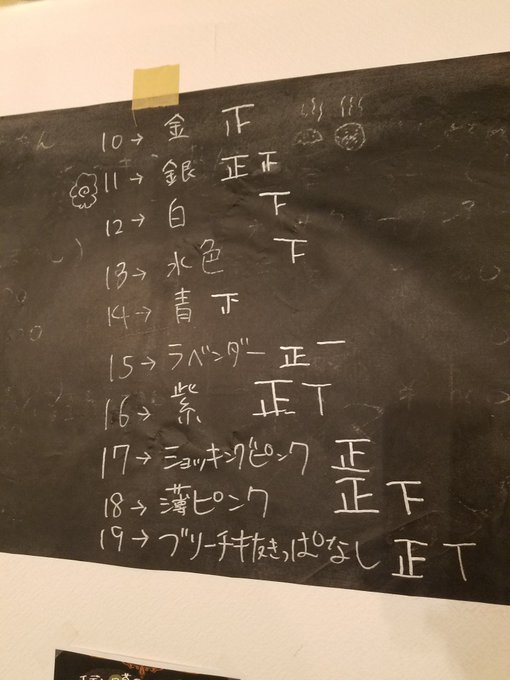 10→ 金 正
11→ 銀 正正
12→ 白 下
13→ 水色 下
14→ 青 下
15→ ラベンダー 正一
16→ 紫 正丁
17→ ショッキングピンク 正
18→ 薄ピンク 正下
19→ ブリーチ抜きっぱなし 正丁